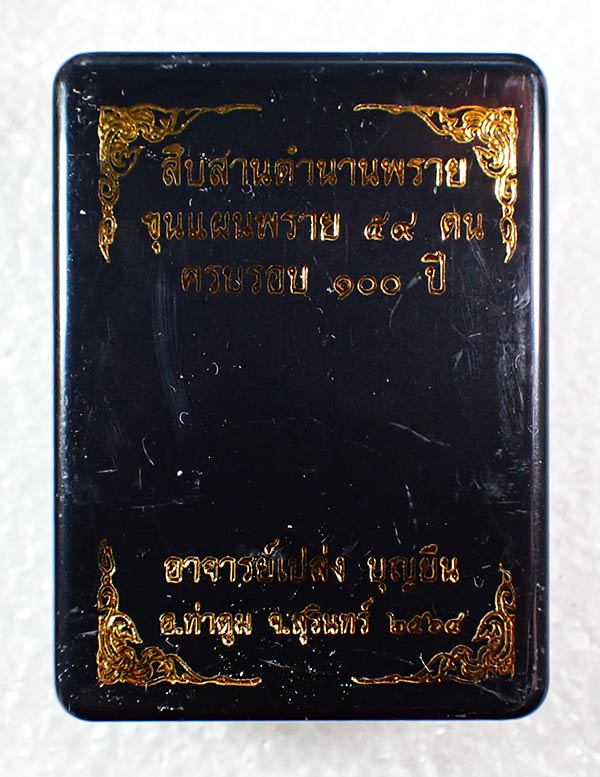 สืบสานตำนานพราย
ขุนแผนพราย ๕๙ ตน
ครบรอบ ๑๐๐ ปี
อาจารย์เปล่ง บุญยืน
อ.ท่าตูม จ.สุรินทร์ ๒๕๖๔